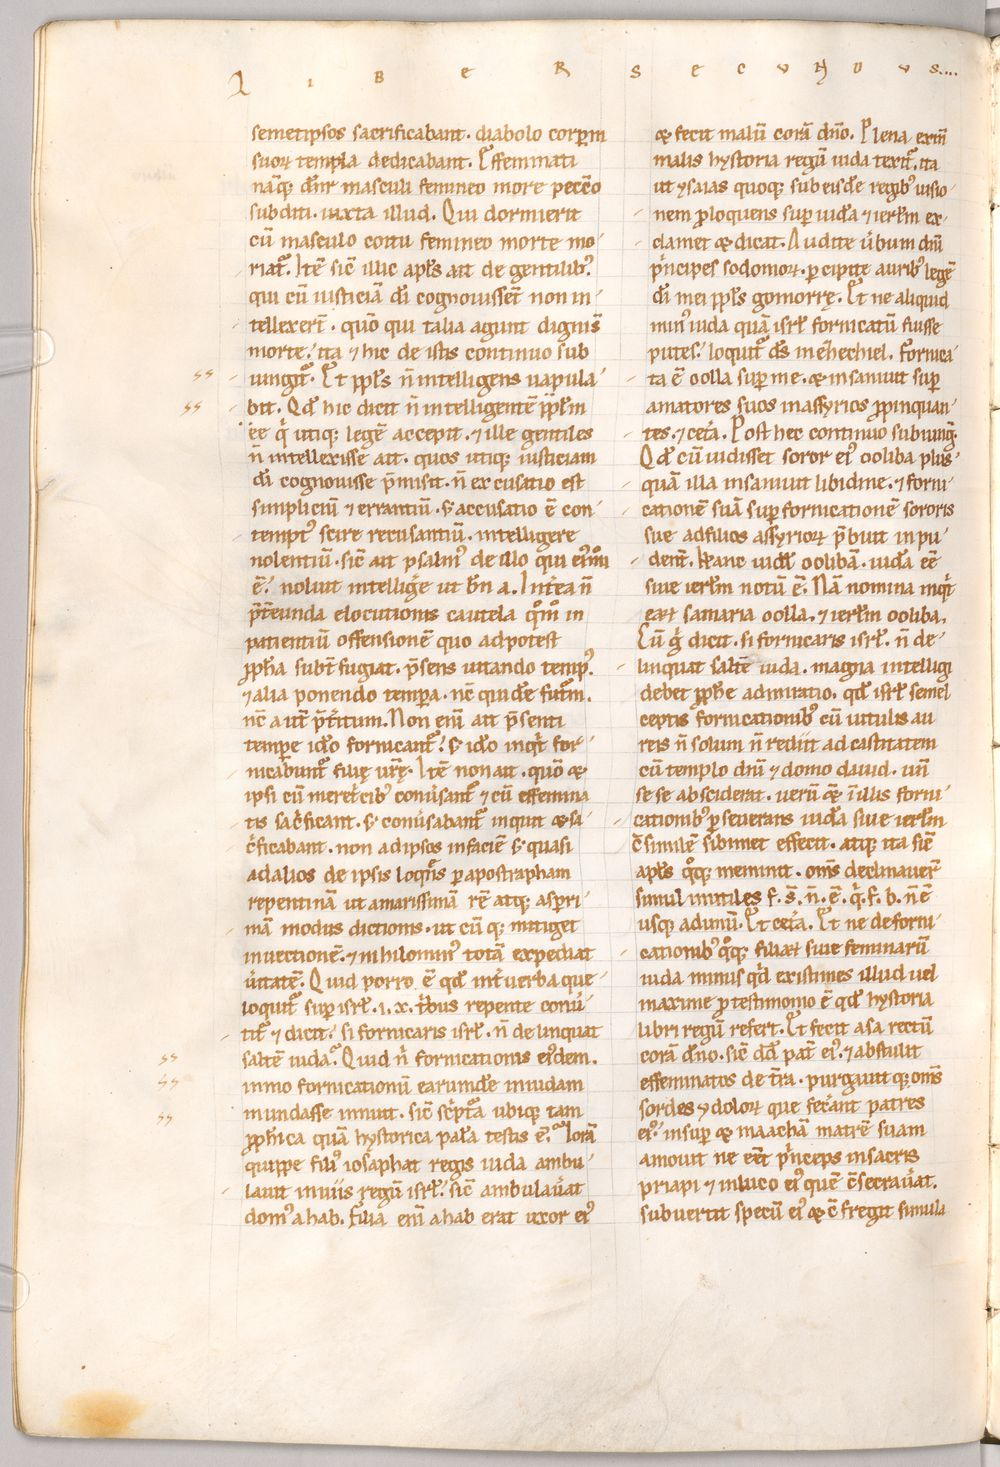 LIBER SECUNDUS....
semetipsos sacrificabant. diabolo corporū
suoꝝ templa dedicabant. Effeminati
nāq; dn̄r masculi femineo more peccō
subditi. iuxta illud. Qui dormierit
cū masculo coitu femineo morte mo-
riat᷑. Itē sic̄ illic apl̄s ait de gentilib᷒.
qui cū iusticiā dī cognouissēt non in-
tellexerr̄t. quō qui talia agunt digni s̄
morte. ita ⁊ hic de istis continuo sub
iungit᷑. Et ppl̄s n̄ intelligens uapula-
bit. Qd̄ hic dicit n̄ intelligentē ppl̄m
ēē q̇ utiq; legē accepit. ⁊ ille gentiles
n̄ intellexisse ait. quos utiq; iusticiam
dī cognouisse p̄misit. n̄ excusatio est
simpliciū ⁊ errantiū. s; accusatio ē con-
tempt᷒ scire recusantiū. intelligere
nolentiū. sic̄ ait psalm᷒ de illo qui
ē. noluit intelliḡe ut bn̄ a. Int̄ea n̄
p̄t̄eunda elocutionis cautela qm̄ in
patientiū offensionē quo ad potest
ꝓph̄a subt̄fugiat. p̄sens uitando temp᷒.
⁊ alia ponendo tempora. nec̄ quidē futm̄.
nec̄ aut̄ p̄t̄itum. Non enī ait p̄senti
tempore idō fornicant᷑. s; idō inq̇t for-
nicabunt᷑ filię urę̄. Itē non ait. quō &
ipsi cū meret̄cib᷒ conūsant᷑ ⁊ cū effemina
tis sac̄ficant. s; conūsabant᷑ inquit & sa-
c̄ficabant. non ad ipsos in faciē s; quasi
ad alios de ipsis loqn̄s per apostrapham
repentinā ut amarissimā rē atq; asperi-
mā modus dictionis. ut cū q; mitiget
inuectionē. ⁊ nihilomin᷒ totā expediat
ūitatē. Quid porro ē qd̄ int̄ uerba que
loquit᷑ super isrl̄. i. x. t̄bus repente conū-
tit᷑ ⁊ dicit. si fornicaris isrl̄. n̄ delinquat
saltē iuda. Quid n̄ fornicationis eiꝰdem.
immo fornicationū earumdē in iudam
inundasse innuit. sic̄ sc̄ptā ubiq; tam
ꝓph̄ica quā hystorica palā testis ē. Iorā
quippe fili᷒ iosaphat regis iuda ambu-
lauit in uiis regū isrl̄. sic̄ ambulauāt
dom᷒ ahab. Filia enī ahab erat uxor ei᷒
& fecit malū corā dn̄o. Plena enī
malis hystoria regū iuda texit᷑. ita
ut ysaias quoq; sub eisdē regib᷒ uisio-
nem proloquens super iudā ⁊ ierl̄m ex-
clamet & dicat. Audite ūbum dnī
p̄ncipes sodomoꝝ. percipite aurib᷒ legē
dī mei ppl̄s gomorrę. Et ne aliquid
min᷒ iuda quā isrl̄ fornicatū fuisse
putes. loquit᷑ ds̄ in ezechiel. Fornica-
ta ē oolla super me. & insaniuit super
amatores suos in assyrios propinquan-
tes. ⁊ cet̄a. Post hec continuo subiunḡ.
Qd̄ cū uidisset soror ei᷒ ooliba plus-
quā illa insaniuit libidine. ⁊ forni-
cationē suā super fornicationē sororis
sue ad filios assyrioꝝ p̄buit inpu-
dent̄. Hanc uidel̄ oolibā. iudā ēē
siue ierl̄m notū ē. Nā nomina inq̇t
eaꝝ samaria oolla. ⁊ ierl̄m ooliba.
Cū g̊ dicit. si fornicaris isrl̄. n̄ de-
linquat saltē iuda. magna intelligi
debet ꝓph̄e admiratio. qd̄ isrl̄ semel
ceptis fornicationib᷒ cū uitulis au
reis n̄ solum n̄ rediit ad castitatem
cū templo dnī ⁊ domo dauid. un̄
se se absciderat. uerū &̄ ī illis forni-
cationib᷒ perseuerans iudā siue ierl̄m
c̄similē sibimet effecit. atq; ita sic̄
apl̄s qq; meminit. oms̄ declinauer̄
simul inutiles f. s̄. n̄. ē. q̇. f. b. n̄ ē
usq; ad unū. Et cet̄a. Et ne de forni-
cationib᷒ qq; filiaꝝ siue feminarū
iuda minus qd̄ existimes illud uel
maxime pro testimonio ē qd̄ hystoria
libri regū refert. Et fecit asa rectū
corā dn̄o. sic̄ dd̄ pat̄ ei᷒. ⁊ abstulit
effeminatos de t̄ra. purgauit q; oms̄
sordes ydoloꝝ que fec̄ant patres
ei᷒. insuper & maachā matrē suam
amouit ne ēēt p̄nceps in sacris
priapi ⁊ in luco ei᷒ quē c̄secrauāt.
subuertit specū ei᷒ & c̄fregit simula